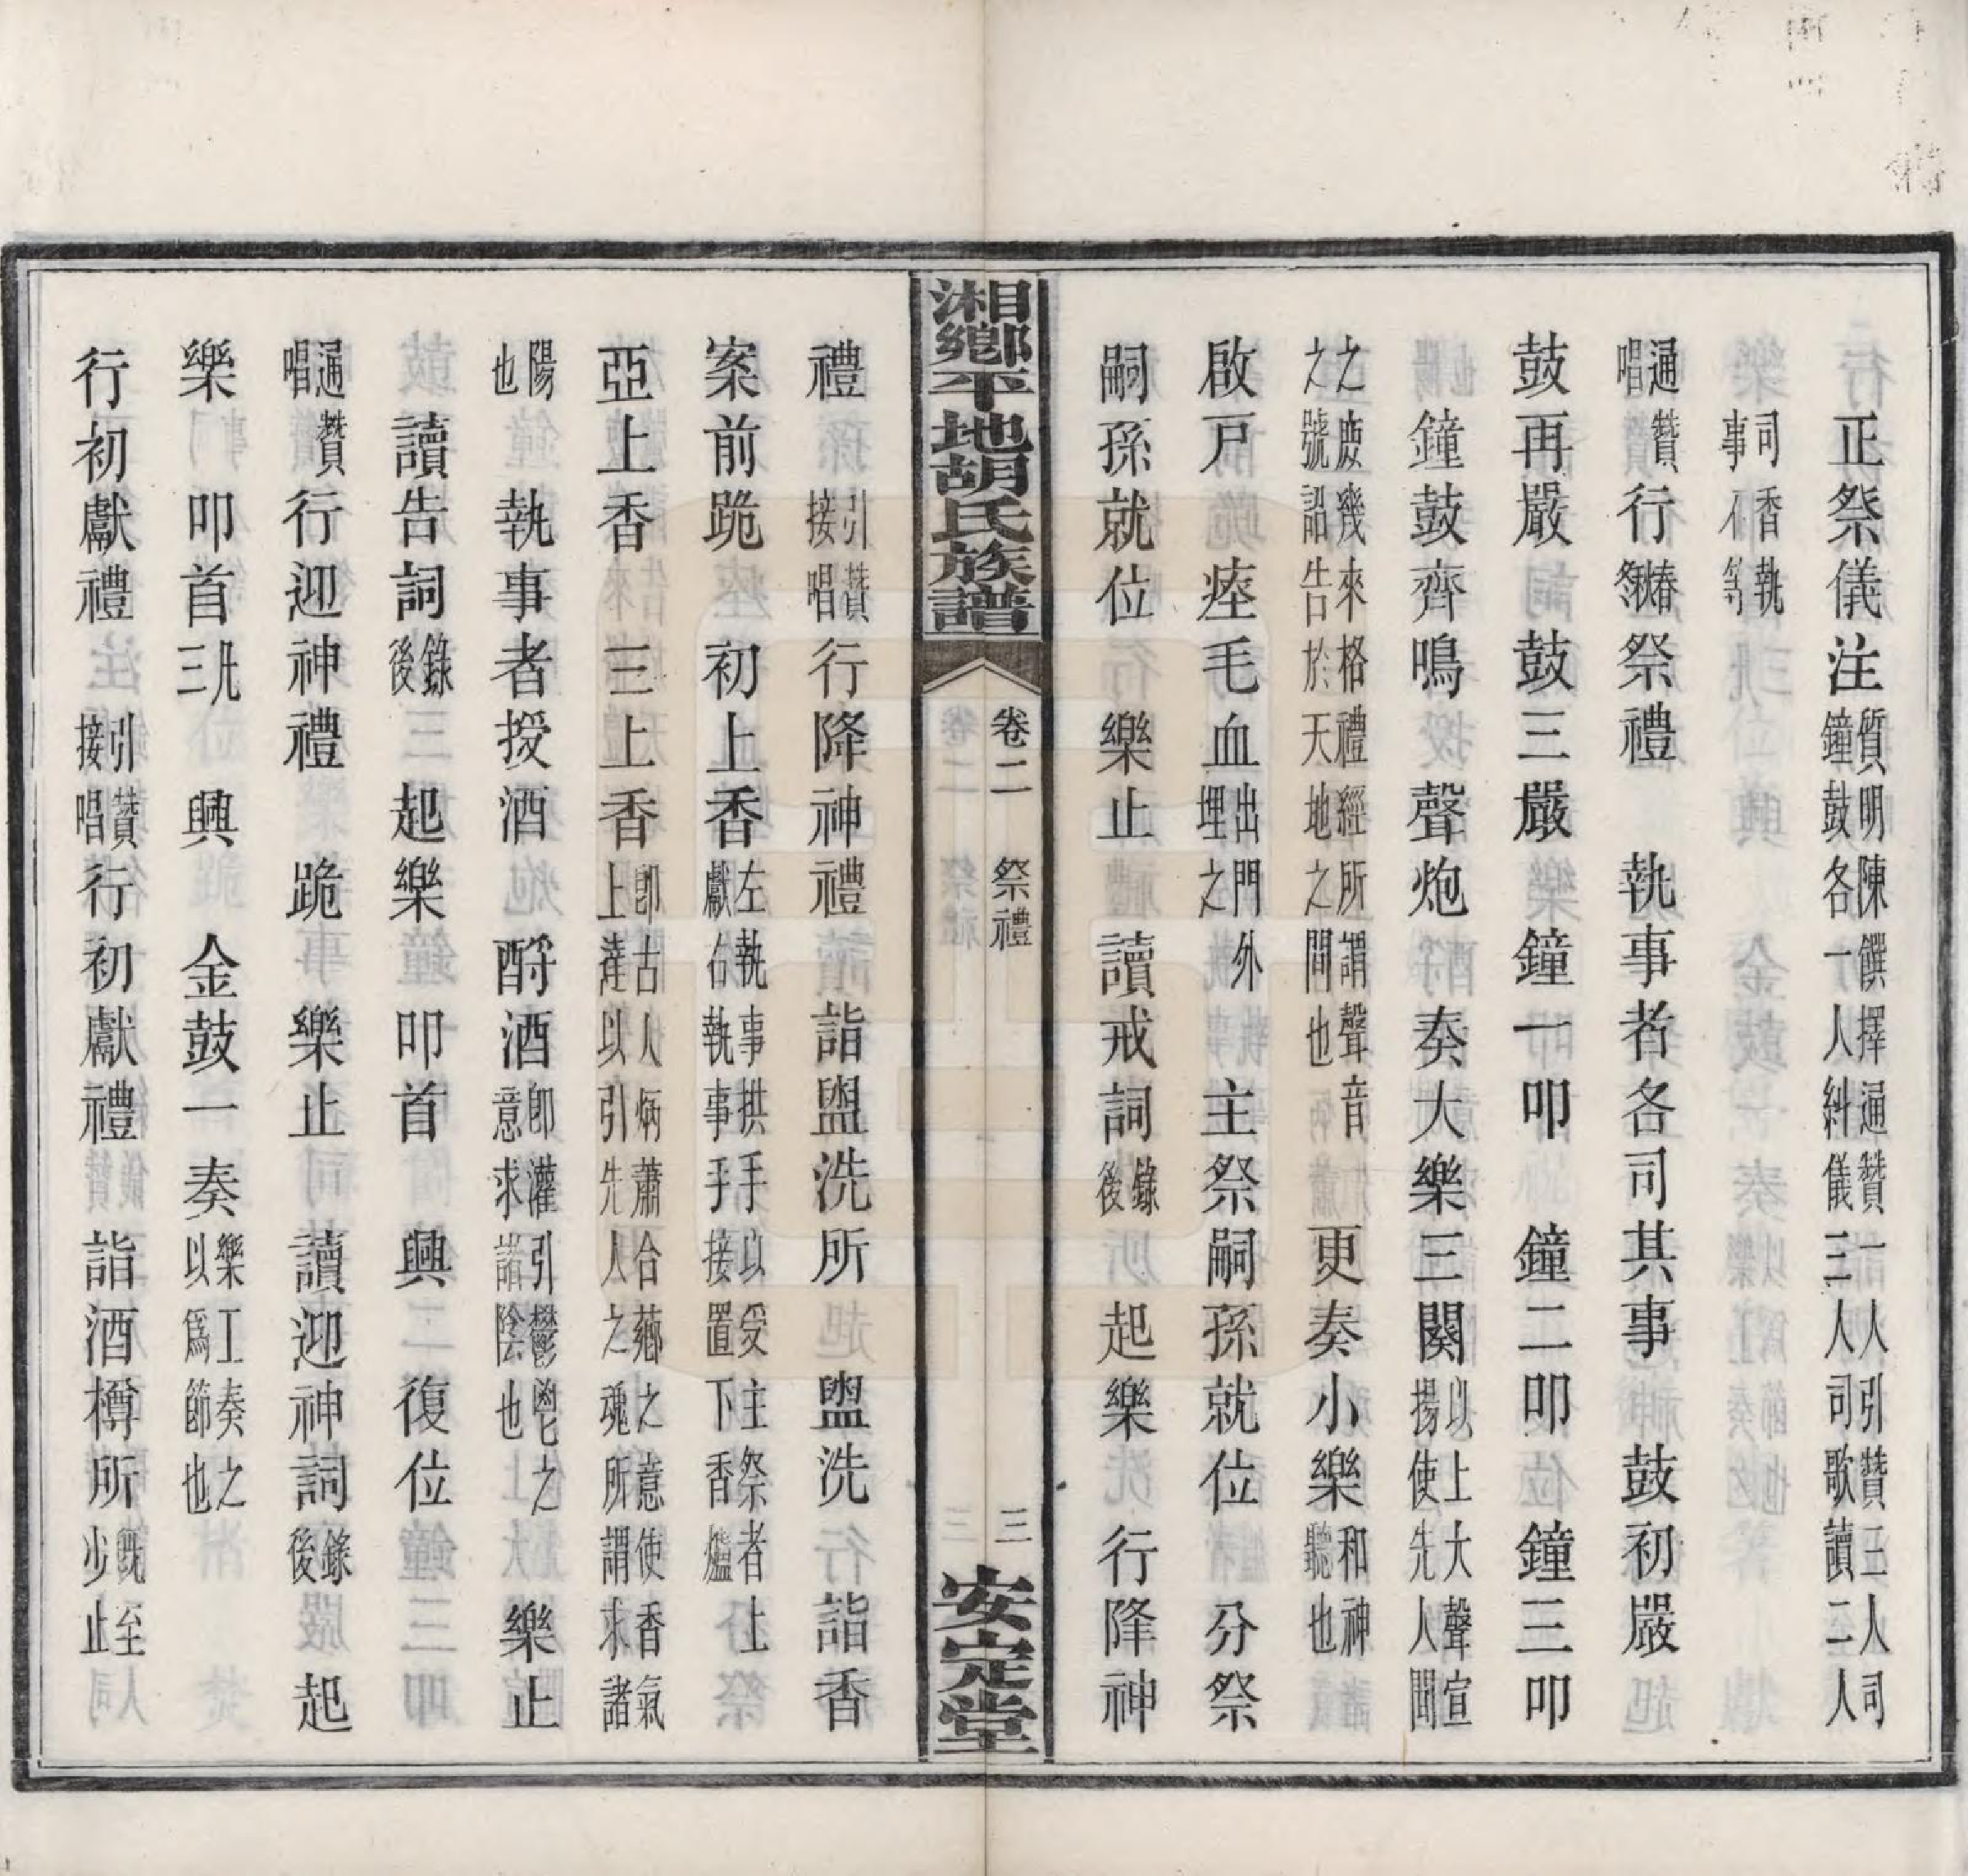 正祭儀注質明陳饌擇通贊一人引贊三人司鐘鼓各一人糾儀二人司歌讀二人
司香執事不等
通贊唱行春秋祭祭禮　執事者各司其事　鼓初嚴
鼓再嚴　鼓三嚴　鐘一叩　鐘二叩　鐘三叩
鐘鼓齊鳴　聲炮　奏大樂三闋以上大聲宣揚使先人聞
之庶幾來格禮經所謂聲音之號詔告於天地之間也　更奏小樂和神聽也
啟戸　瘞毛血出門外埋之　主祭嗣孫就位　分祭
嗣孫就位　樂止　讀戒詞錄後　起樂　行降神
湘鄉平地胡氏族譜　卷二　祭禮　三　安定堂
禮　引贊接唱行降神禮　詣盥洗所　盥洗　詣香
案前跪　初上香左執事拱手以獻右執事手接置下受主祭者上香爐
亞上香　三上香卽古人焫蕭合薌之意使香氣上達以引先人之魂所謂求諸
陽也　執事者授酒　酹酒卽灌引鬱鬯之意求諸陰也　樂止
讀告詞錄後　起樂　叩首　興　復位
通贊唱行迎神禮　跪　樂止　讀迎神詞錄後　起
樂　叩首凡三　興　金鼓一奏樂工奏之以爲節也
行初獻禮　引贊接唱行初獻禮　詣酒樽所旣至少止